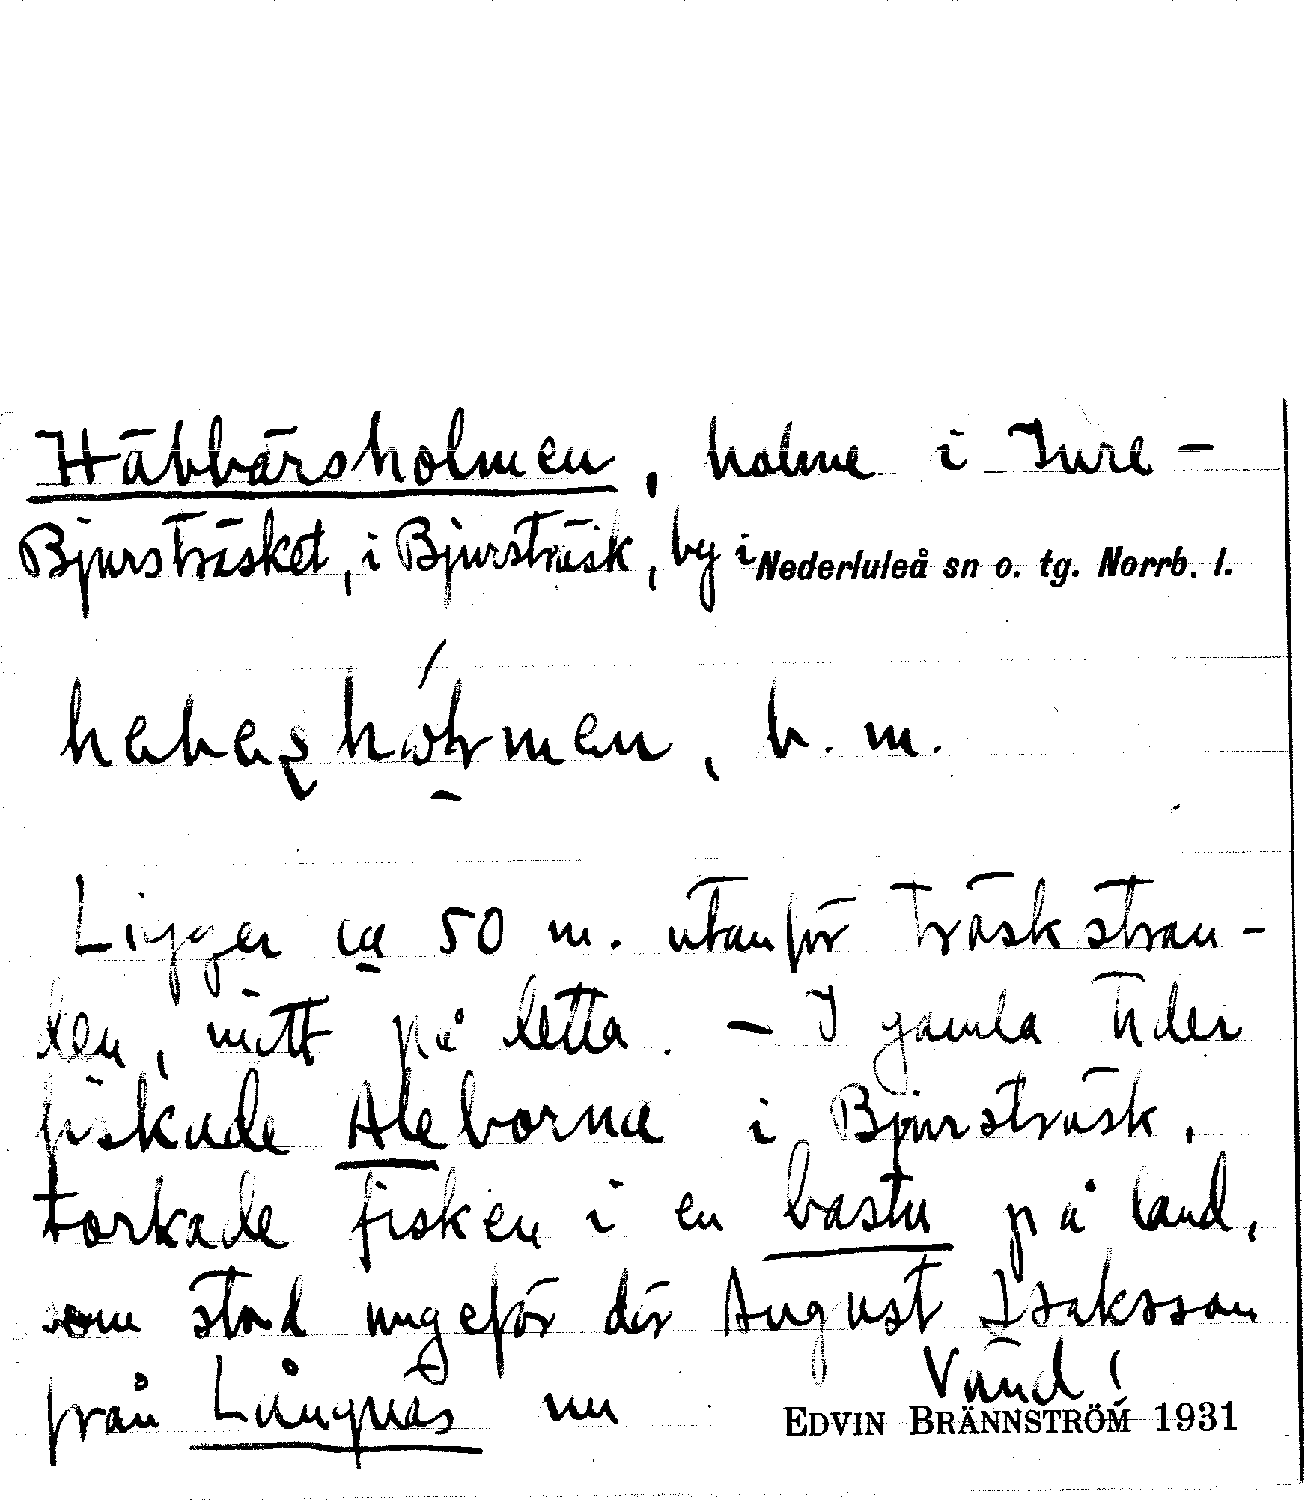 Häbbärsholmen, holme i Inre-
Bjursträsket, i Bjursträsk, by i Nederluleå sn o. tg. Norrb. l.
b. m.
Ligger ca 50 m. utanför träskstran-
den, mitt på detta. – I gamla tider
fiskade Aleborna i Bjursträsk,
torkade fisken i en bastu på land,
som stod ungefär där August Isaksson
från Långnäs nu Vänd!
EDVIN BRÄNNSTRÖM 1931